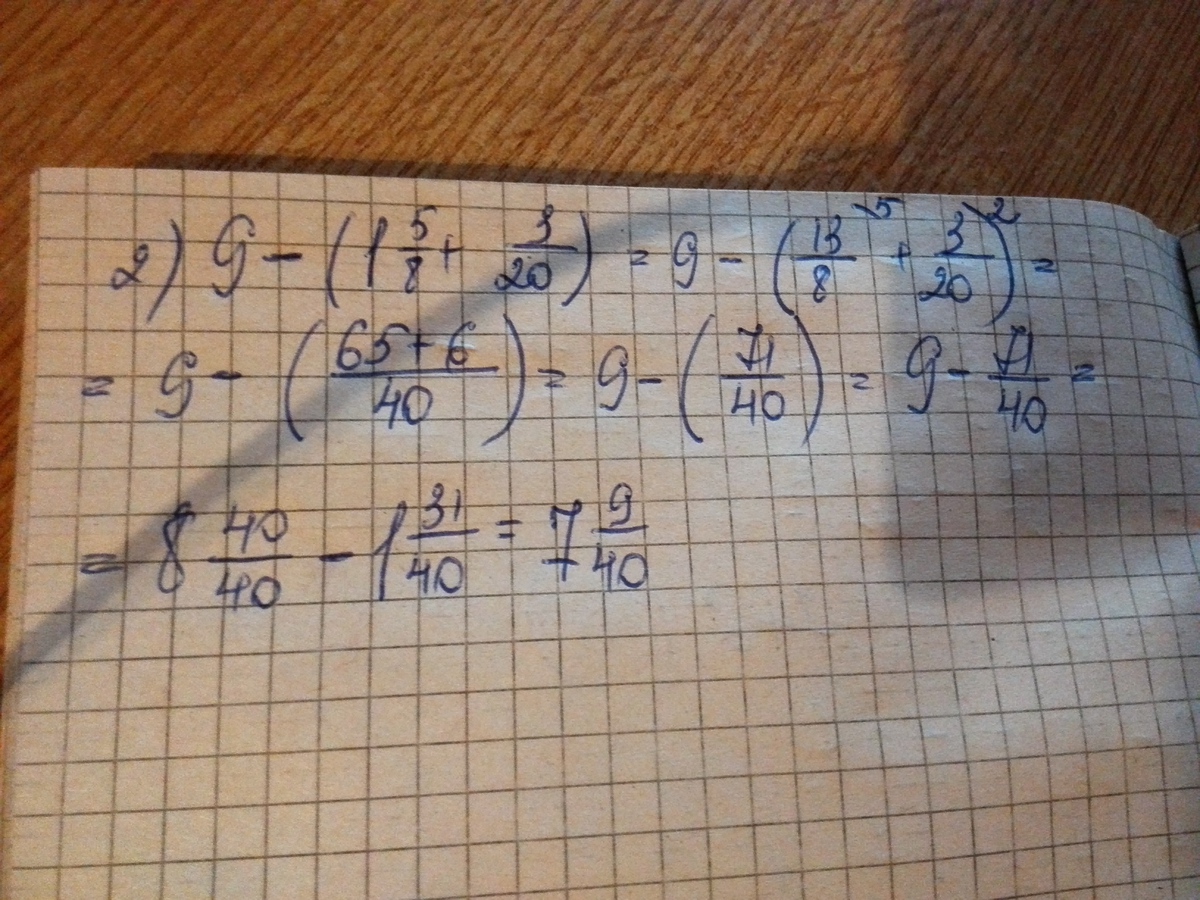 2) 9 - (1 5/8 + 3/20) = 9 - (13/8 \5 + 3/20 \2) =
= 9 - ((65+6)/40) = 9 - (71/40) = 9 - 71/40 =
= 8 40/40 - 1 31/40 = 7 9/40